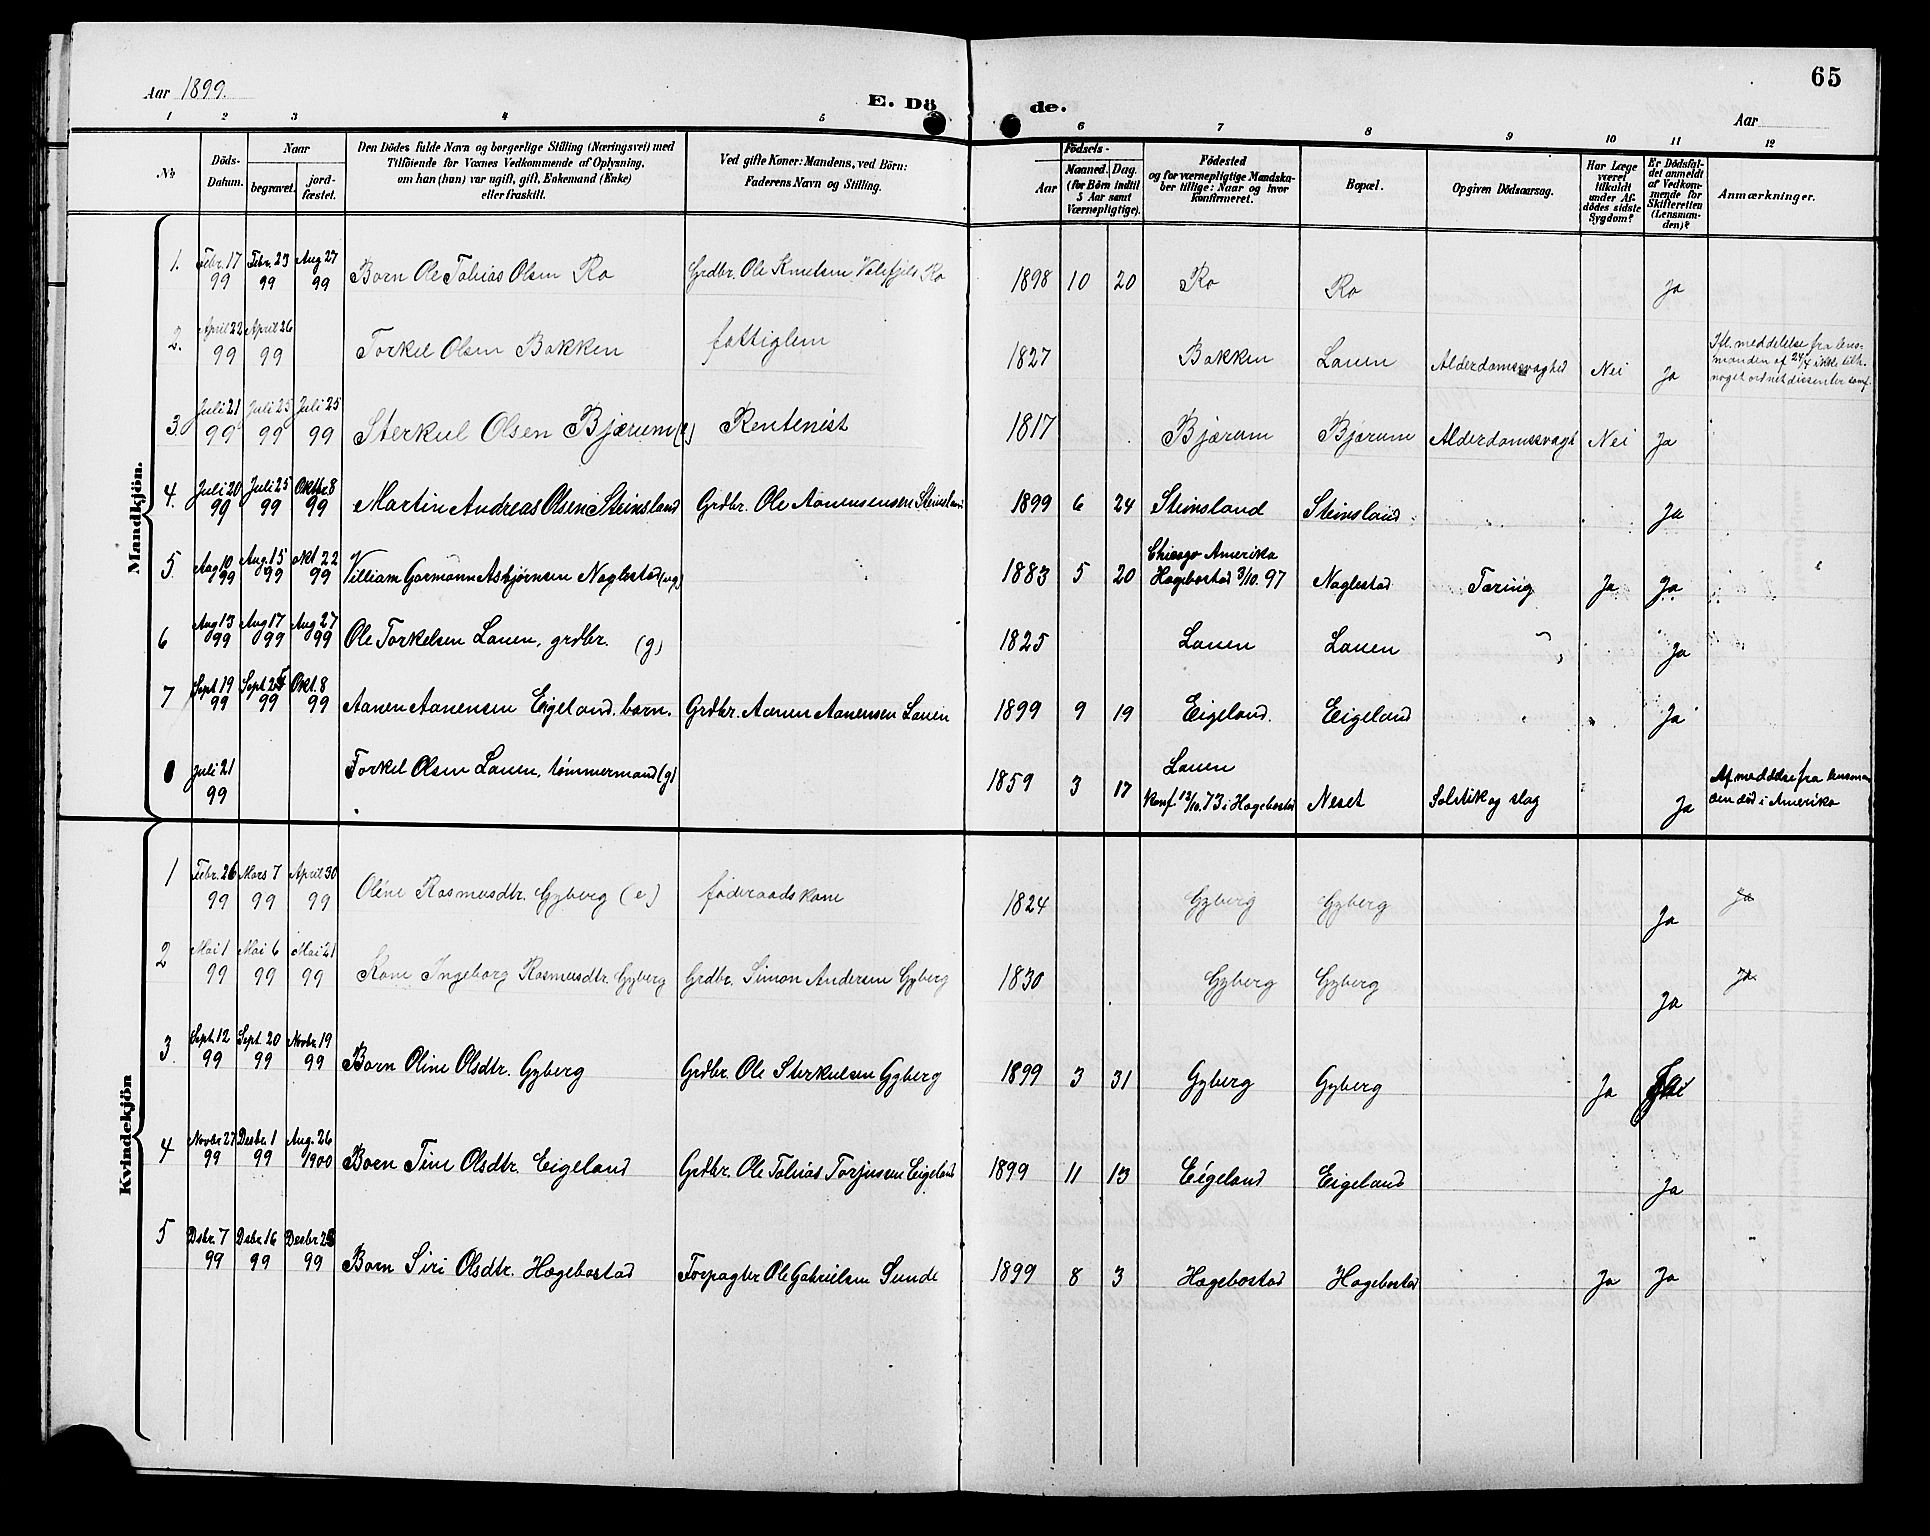 65
Aar 1899.
E. Dö de.
Aar
1 2 3 4 5 6 7 8 9 10 11 12
No
Döds-Datum.
Naar
begravet.
jord-fæstet.
Den Dödes fulde Navn og borgerlige Stilling (Næringsvei) med
Tilföiende for Voxnes Vedkommende af Oplysning,
om han (hun) var ugift, gift, Enkemand (Enke)
eller fraskilt.
Ved gifte Koner: Mandens, ved Börn:
Faderens Navn og Stilling.
Födsels-
Aar
Maaned. Dag.
(for Börn indtil
5 Aar samt
Værnepligtige).
Födested
og for værnepligtige Mandska-
ber tillige: Naar og hvor
konfirmeret.
Bopæl.
Opgiven Dödsaarsag.
Har Læge
været
tilkaldt
under Af-
dödes sidste
Sygdom?
Er Dödsfal-
det anmeldt
af Vedkom-
mende for
Skifteretten
(Lensman-
den)?
Anmærkninger.
Mandkjön.
1. Febr. 17 99 Febr. 23 99 Aug 27 99 Barn Ole Tobias Olsen Ro Grdbr. Ole Knutsen Ro 1898 10 20 Ro Ro Ja
2. April 22 99 April 26 99 Torkel Olsen Bakken fattiglem 1827 Bakken Lauen Alderdomssvaghed Nei Ja meddelelse fra lens-
manden af 24/4 ikke
noget ordnet dissenter samf.
3. Juli 21 99 Juli 25 99 Juli 25 99 Sterkul Olsen Bjærum (e) Rentenist 1817 Bjærum Bjærum Alderdomssvagh Nei Ja
4. Juli 20 99 Juli 25 99 Oktbr. 8 99 Martin Andreas Olsen Steinsland Grdbr. Ole Aanensen Steinsland 1899 6 24 Steinsland Steinsland Ja
5. Aug 10 99 Aug. 15 99 okt. 22 99 Villiam Gormann Asbjørnsen Naglestad (ug) 1883 5 20 Chicago Amerika
Hægebostad 3/10. 97 Naglestad Tæring Ja Ja
6 Aug 13 99 Aug 17 99 Aug. 27 99 Ole Torkelsen Lauen, grdbr. (g) 1825 Lauen Lauen Ja
7 Sept. 19 99 Sept. 24 99 Okt. 8 99 Aanen Aanensen Eigeland. barn. Grdbr. Aanen Aanensen Lauen 1899 9 19 Eigeland. Eigeland Ja
Juli 21 99 Torkel Olsen Lauen, tømmermand (g) 1859 3 17 Lauen
konf. 12/10. 73 i Hægebostad Neset Solstik og slag Ja Af meddelse fra lensman
den død i Amerika
Kvindekjön
1 Febr. 26 99 Mars 7 99 April 30 99 Oline Rasmusdtr. Gyberg (e) føderaadskone 1824 Gyberg Gyberg Ja Ja
2 Mai 1 99 Mai 6 99 Mai 21 99 Kone Ingeborg Rasmusdtr. Gyberg Grdbr. Simon Andersen Gyberg 1830 Gyberg Gyberg Ja Ja
3 Sept. 12 99 Sept. 20 99 Novbr. 19 99 Barn Oline Olsdtr. Gyberg Grdbr. Ole Sterkulsen Gyberg 1899 3 31 Gyberg Gyberg Ja
4 Novbr 27 99 Desbr. 1 99 Aug. 26 1900 Barn Tine Olsdtr. Eigeland Grdbr. Ole Tobias Torjusen Eigeland 1899 11 13 Eigeland Eigeland Ja
5 Dsbr. 7 99 Dsbr. 16 99 Desbr 99 Barn Siri Olsdtr. Hægebostad Forpagter Ole Gabrielsen Sunde 1899 8 3 Hægebostad Hægebostad Ja Ja